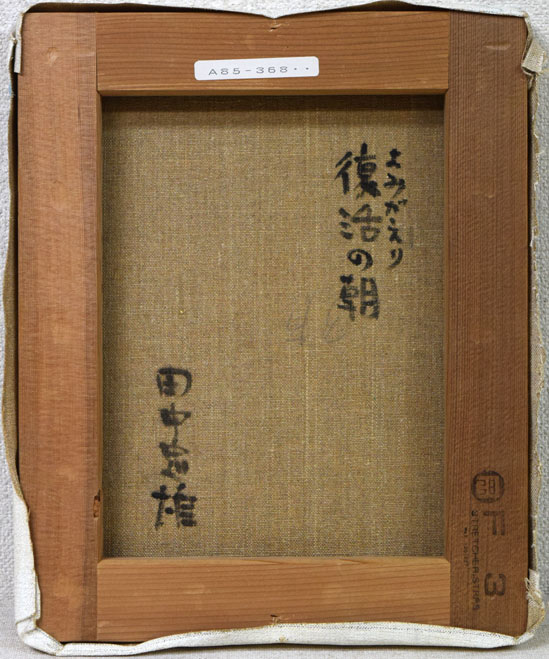 A85-368··
よみがえり
復活の朝
田中忠雄
F 3
STRETCHER STRIPS